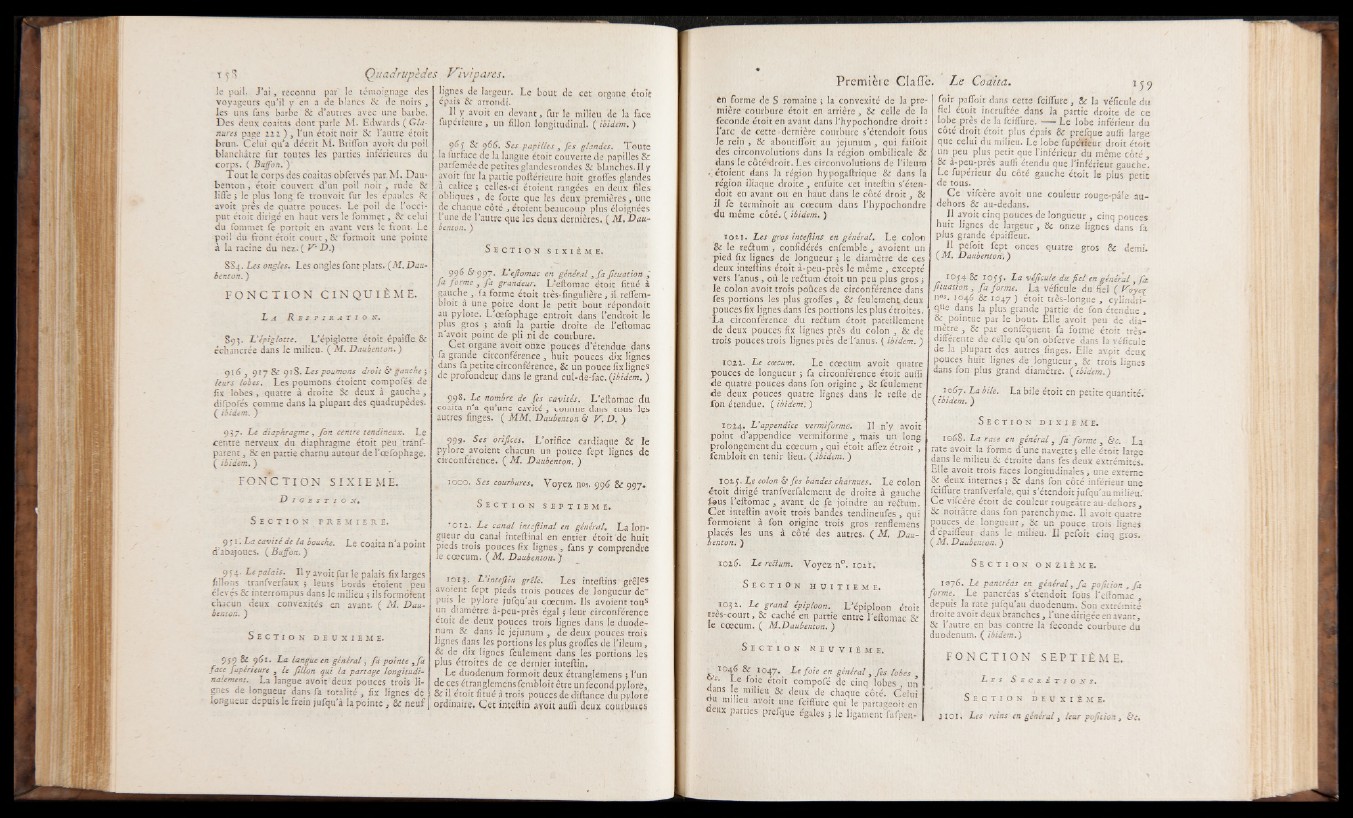 158 Quadrupèdes Vivipares.
le poil. J'ai, reconnu par le témoignage des
voyageurs qu'il y en a de blancs & de noirs,
les uns sans barbe & d'autres avec une barbe.
Des deux coaitas dont parle M. Edwards (Gla-
nures page 222), l'un étoit noir & l'autre étoit
brun. Celui qu'a décrit M. Brisson avoit du poil
blanchâtre sur toutes les parties inférieures du
corps. (Buffon.)
Tout le corps des coaitas observés par M. Dau-
benton, étoit couvert d'un poil noir, rude &
lisse; le plus long se trouvoit sur les épaules &
avoit près de quatre pouces. Le poil de l'occi-
put étoit dirigé en haut vers le sommet, & celui
du sommet se portoit en avant vers le front. Le
poil du front étoit court, & formoit une pointe
à la racine du nez. (V. D.)
884. Les ongles. Les ongles sont plats. (M. Dau-
benton.)
FONCTION CINQUIÈME.
LA RESPIRATION.
893. L'épiglotte. L'épiglotte étoit épaisse &
échancrée dans le milieu. (M. Daubenton.)
916, 917 & 918. Les poumons droit & gauche;
leurs lobes. Les poumons étoient composés de
six lobes, quatre à droite & deux à gauche,
disposés comme dans la plupart des quadrupèdes.
(ibidem.)
937. Le diaphragme, son centre tendineux. Le
centre nerveux du diaphragme étoit peu trans-
parent, & en partie charnu autour de l'œsophage.
(ibidem.)
FONCTION SIXIEME.
DIGESTION.
SECTION PREMIERE.
951. La cavité de la bouche. Le coaita n'a point
d'abajoues. (Buffon.)
954. Le palais. Il y avoit sur le palais six larges
sillons transversaux; leurs bords étoient peu
élevés & interrompus dans le milieu; ils formoient
chacun deux convexités en avant. (M. Dau-
benton.)
SECTION DEUXIEME.
959 & 961. La langue en général, sa pointe, sa
face supérieure, le sillon qui la partage longitudi-
nalement. La langue avoit deux pouces trois li-
gnes de longueur dans sa totalité, six lignes de
longueur depuis le frein jusqu'à la pointe, & neuf
lignes de largeur. Le bout de cet organe étoit
épais & arrondi.
Il y avoit en devant, sur le milieu de la face
supérieure, un sillon longitudinal. (idem.)
965 & 966. Ses papilles, ses glandes. Toute
la surface de la langue étoit couverte de papilles &
parsemée de petites glandes rondes & blanches. Il y
avoit sur la partie postérieure huit grosses glandes
à calice; celles-ci étoient rangées en deux files
obliques, de sorte que les deux premières, une
de chaque côté, étoient beaucoup plus éloignées
l'une de l'autre que les deux dernières. (M. Dau-
benton.)
SECTION SIXIÈME.
996 & 997. L'estomac en général, sa situation,
sa forme, sa grandeur. L'estomac étoit situé à
gauche, sa forme étoit très-singulière, il ressem-
bloit à une poire dont le petit bout répondoit
au pylore. L'œsophage entroit dans l'endroit le
plus gros; ainsi la partie droite de l'estomac
n'avoit point de pli ni de courbure.
Cet organe avoit onze pouces d'étendue dans
sa grande circonférence, huit pouces dix lignes
dans sa petite circonférence, & un pouce six lignes
de profondeur dans le grand cul-de-sac. (ibidem.)
998. Le nombre de ses cavités. L'estomac du
coaita n'a qu'une cavité, comme dans tous les
autres singes. (MM. Daubenton & V. D.)
999. Ses orifices. L'orifice cardiaque & le
pylore avoient chacun un pouce sept lignes de
circonférence. (M. Daubenton.)
1000. Ses courbures. Voyez nos. 996 & 997.
SECTION SEPTIEME.
1012. Le canal intestinal en général. La lon-
gueur du canal intestinal en entier étoit de huit
pieds trois pouces six lignes, sans y comprendre
le cœcum. (M. Daubenton.)
1013. L'intestin grêle. Les intestins grêles
avoient sept pieds trois pouces de longueur de-
puis le pylore jusqu'au cœcum. Ils avoient tous
un diamètre à-peu-près égal; leur circonférence
étoit de deux pouces trois lignes dans le duode-
num & dans le jejunum, de deux pouces trois
lignes dans les portions les plus grosses de l'ileum,
& de dix lignes seulement dans les portions les
plus étroites de ce dernier intestin.
Le duodenum formoit deux étranglemens; l'un
de ces étranglemens sembloit être un second pylore,
& il étoit situé à trois pouces de distance du pylore
ordinaire. Cet intestin avoit aussi deux courbures
Première Classe. Le Coaita. 159
en forme de S romaine; la convexité de la pre-
mière courbure étoit en arrière, & celle de la
seconde étoit en avant dans l'hypochondre droit:
l'arc de cette dernière courbure s'étendoit sous
le rein, & aboutissoit au jejunum, qui faisoit
des circonvolutions dans la région ombilicale &
dans le côté droit. Les circonvolutions de l'ileum
étoient dans la région hypogastrique & dans la
région iliaque droite, ensuite cet intestin s'éten-
doit en avant ou en haut dans le côté droit, &
il se terminoit au cœcum dans l'hypochondre
du même côté. (ibidem.)
1021. Les gros intestins en général. Le colon
& le rectum, considérés ensemble, avoient un
pied six lignes de longueur; le diamètre de ces
deux intestins étoit à-peu-près le même, excepté
vers l'anus, où le rectum étoit un peu plus gros;
le colon avoit trois pouces de circonférence dans
ses portions les plus grosses, & seulement deux
pouces six lignes dans ses portions les plus étroites.
La circonférence du rectum étoit pareillement
de deux pouces six lignes près du colon, & de
trois pouces trois lignes près de l'anus. (ibidem.)
1022. Le cœcum. Le cœcum avoit quatre
pouces de longueur; sa circonférence étoit aussi
de quatre pouces dans son origine, & seulement
de deux pouces quatre lignes dans le reste de
son étendue. (ibidem.)
1024. L'appendice vermiforme. Il n'y avoit
point d'appendice vermiforme, mais un long
prolongement du cœcum, qui étoit assez étroit,
sembloit en tenir lieu. (ibidem.)
1025. Le colon & ses bandes charnues. Le colon
étoit dirigé transversalement de droite à gauche
sous l'estomac, avant de se joindre au rectum.
Cet intestin avoit trois bandes tendineuses, qui
formoient à son origine trois gros renflemens
placés les uns à côté des autres. (M. Dau-
benton.)
1026. Le rectum. Voyez n°. 1021.
SECTION HUITIEME.
1032. Le grand épiploon. L'épiploon étoit
très-court, & caché en partie entre l'estomac &
le cœcum. (M. Daubenton.)
SECTION NEUVIÈME.
1046 & 1047. Le foie en général, ses lobes,
&c. Le foie étoit composé de cinq lobes, un
dans le milieu & deux de chaque côté. Celui
du milieu avoit une scissure qui le partageoit en
deux parties presque égales; le ligament suspen-
soir passoit dans cette scissure, & la vésicule du
fiel étoit incrustée dans la partie droite de ce
lobe près de la scissure. — Le lobe inférieur du
côté droit étoit plus épais & presque aussi large
que celui du milieu. Le lobe supérieur droit étoit
un peu plus petit que l'inférieur du même côté,
& à-peu-près aussi étendu que l'inférieur gauche.
Le supérieur du côté gauche étoit le plus petit
de tous.
Ce viscère avoit une couleur rouge-pâle au-
dehors & au-dedans.
Il avoit cinq pouces de longueur, cinq pouces
huit lignes de largeur, & onze lignes dans sa
plus grande épaisseur.
Il pesoit sept onces quatre gros & demi.
(M. Daubenton.)
1054 & 1055. La vésicule du fiel en général, sa
situation, sa forme. La vésicule du fiel (Voyez
nos. 1046 & 1047) étoit très-longue, cylindri-
que dans la plus grande partie de son étendue,
& pointue par le bout. Elle avoit peu de dia-
mètre, & par conséquent sa forme étoit très-
différente de celle qu'on observe dans la vésicule
de la plupart des autres singes. Elle avoit deux
pouces huit lignes de longueur, & trois lignes
dans son plus grand diamètre. (ibidem.)
1067. La bile. La bile étoit en petite quantité.
(ibidem.)
SECTION DIXIEME.
1068. La rate en général, sa forme, &c. La
rate avoit la forme d'une navette; elle étoit large
dans le milieu & étroite dans ses deux extrémités.
Elle avoit trois faces longitudinales, une externe
& deux internes; & dans son côté inférieur une
scissure transversale, qui s'étendoit jusqu'au milieu.
Ce viscère étoit de couleur rougeâtre au-dehors,
& noirâtre dans son parenchyme. Il avoit quatre
pouces de longueur, & un pouce trois lignes
d'épaisseur dans le milieu. Il pesoit cinq gros.
(M. Daubenton.)
SECTION ONZIÈME.
1076. Le pancréas en général, sa position, sa
forme. Le pancréas s'étendoit sous l'estomac,
depuis la rate jusqu'au duodenum. Son extrémité
droite avoit deux branches, l'une dirigée en avant,
& l'autre en bas contre la seconde courbure du
duodenum. (ibidem.)
FONCTION SEPTIÈME.
LES SECRÉTIONS.
SECTION DEUXIEME.
1101. Les reins en général, leur position, &c.